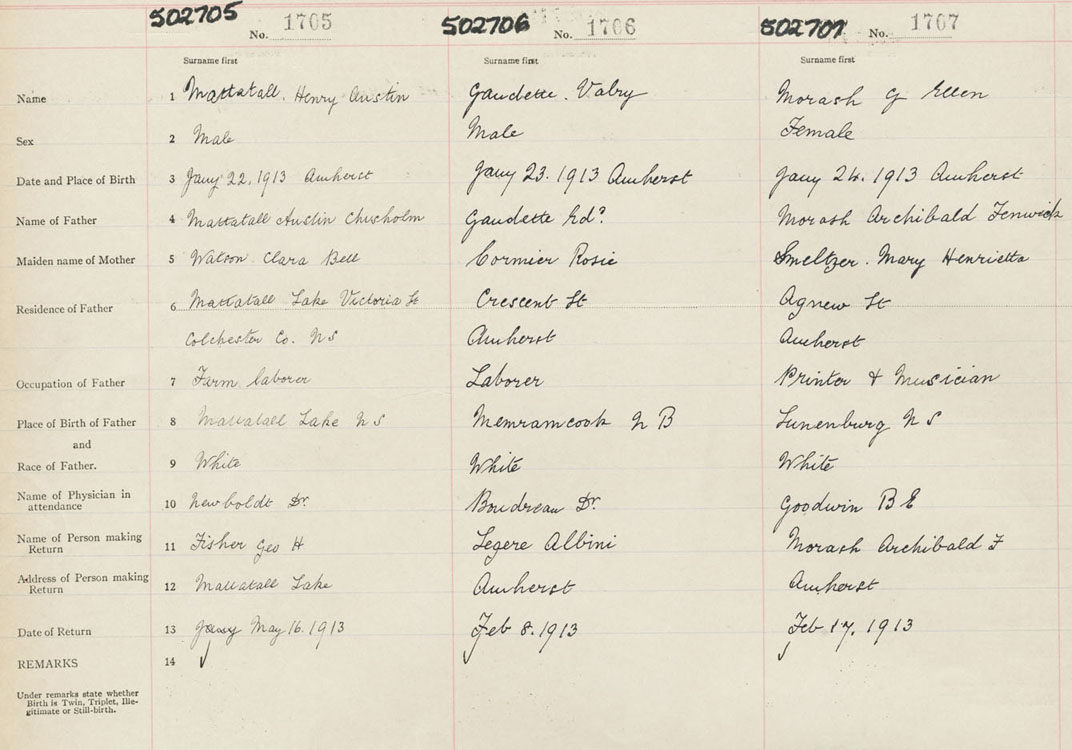 502705 No. 1705 502706 No. 1706 502707 No. 1707
Surname first Surname first Surname first
Name 1 Mattatall. Henry Austin Gaudette. Valry Morash G Ellen
Sex 2 Male Male Female
Date and Place of Birth 3 Jany 22. 1913 Amherst Jany 23. 1913 Amherst Jany 24. 1913 Amherst
Name of Father 4 Mattatall Austin Chisholm Gaudette Edd. Morash Archibald Fenwick
Maiden name of Mother 5 Watson Clara Bell Cormier Rosie Smeltzer. Mary Henrietta
Residence of Father 6 Mattatall Lake Victoria St Crescent St Agnew St
Colchester Co. N S Amherst Amherst
Occupation of Father 7 Farm laborer Laborer Printer & Musician
Place of Birth of Father 8 Mattatall Lake N S Memramcook N B Lunenburg N S
and
Race of Father. 9 White White White
Name of Physician in
attendance 10 Newboldt Dr. Boudreau Dr. Goodwin B E
Name of Person making
Return 11 Fisher Geo H Legere Albini Morash Archibald F
Address of Person making
Return 12 Mattatall Lake Amherst Amherst
Date of Return 13 Jany May 16. 1913 Feb 8. 1913 Feb 17. 1913
REMARKS 14
Under remarks state whether
Birth is Twin, Triplet, Ille-
gitimate or Still-birth.